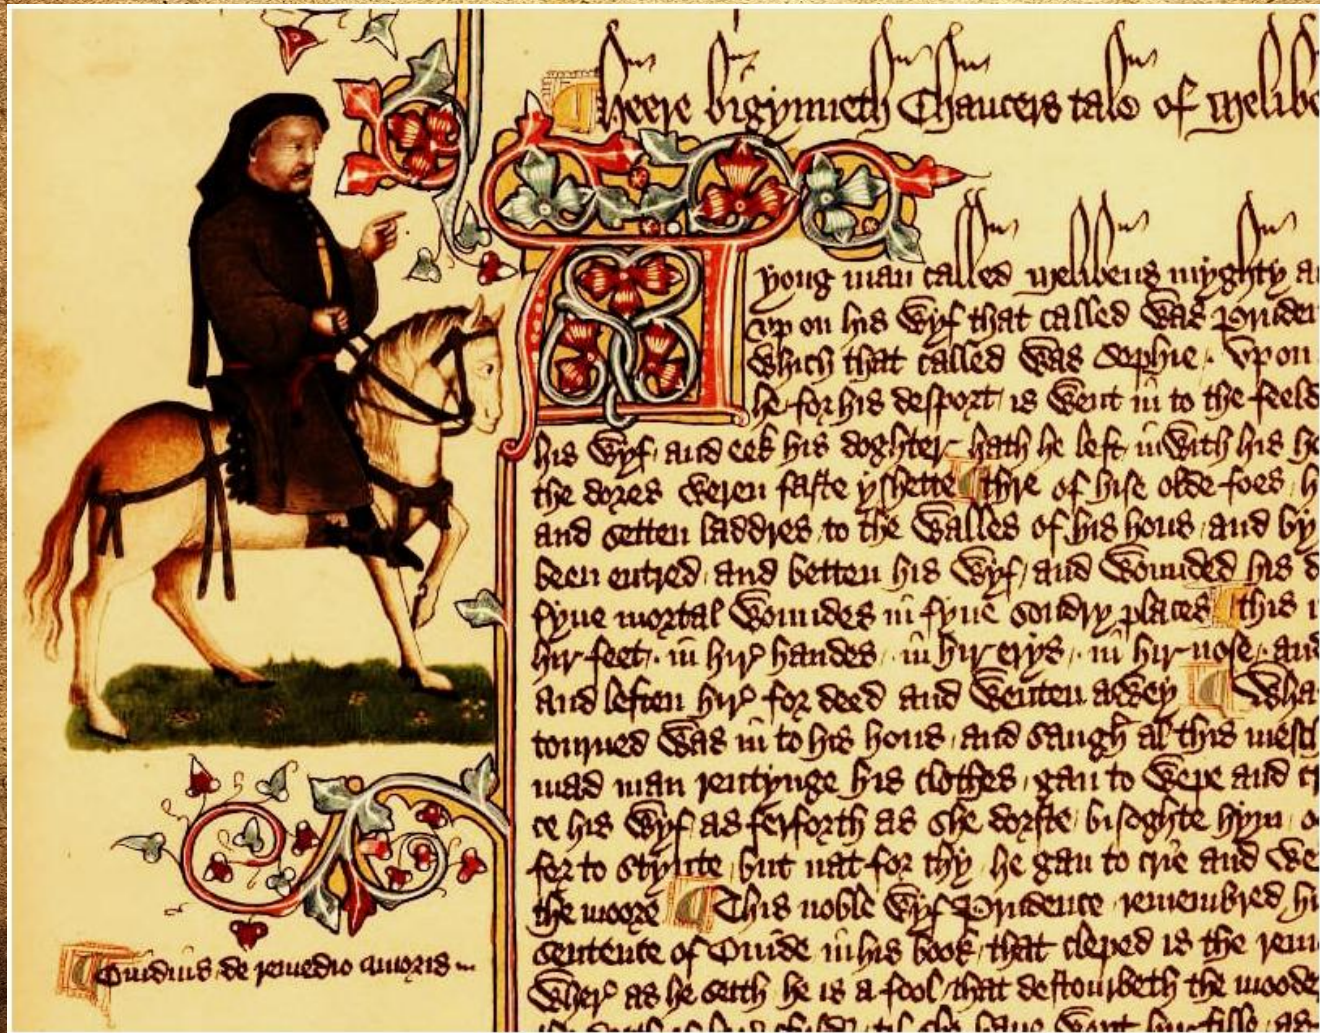 Heere bigynneth Chaucers tale of Melibe
A
yong man called Melibeus myghty a
vp on his wyf that called was Pruden
which that called was Sophie. Vpon
he for his desport is went in to the feeld
his wyf, and eek his doghter hath he left inwith his h
the dores weren faste yshette thre of hise olde foes h
and setten laddres to the walles of his hous and by
been entred, and betten his wyf, and wounded his d
fyue mortal woundes in fyue sondry places this
hir feet, in hir handes, in hir erys, in hir nose, and
and leften hir for deed and wenten awey Wha
tourned was in to his hous, and saugh al this mesch
mad man rentynge his clothes, gan to wepe and cr
ce his wyf as ferforth as she dorste bisoghte hym o
for to stynte, but nat for thy he gan to crie and we
the moore This noble wyf Prudence remembred hi
sentence of Ouide in his book that cleped is the rem
wher as he seith he is a fool that destourbeth the mooder
Ouidius de remedio amoris